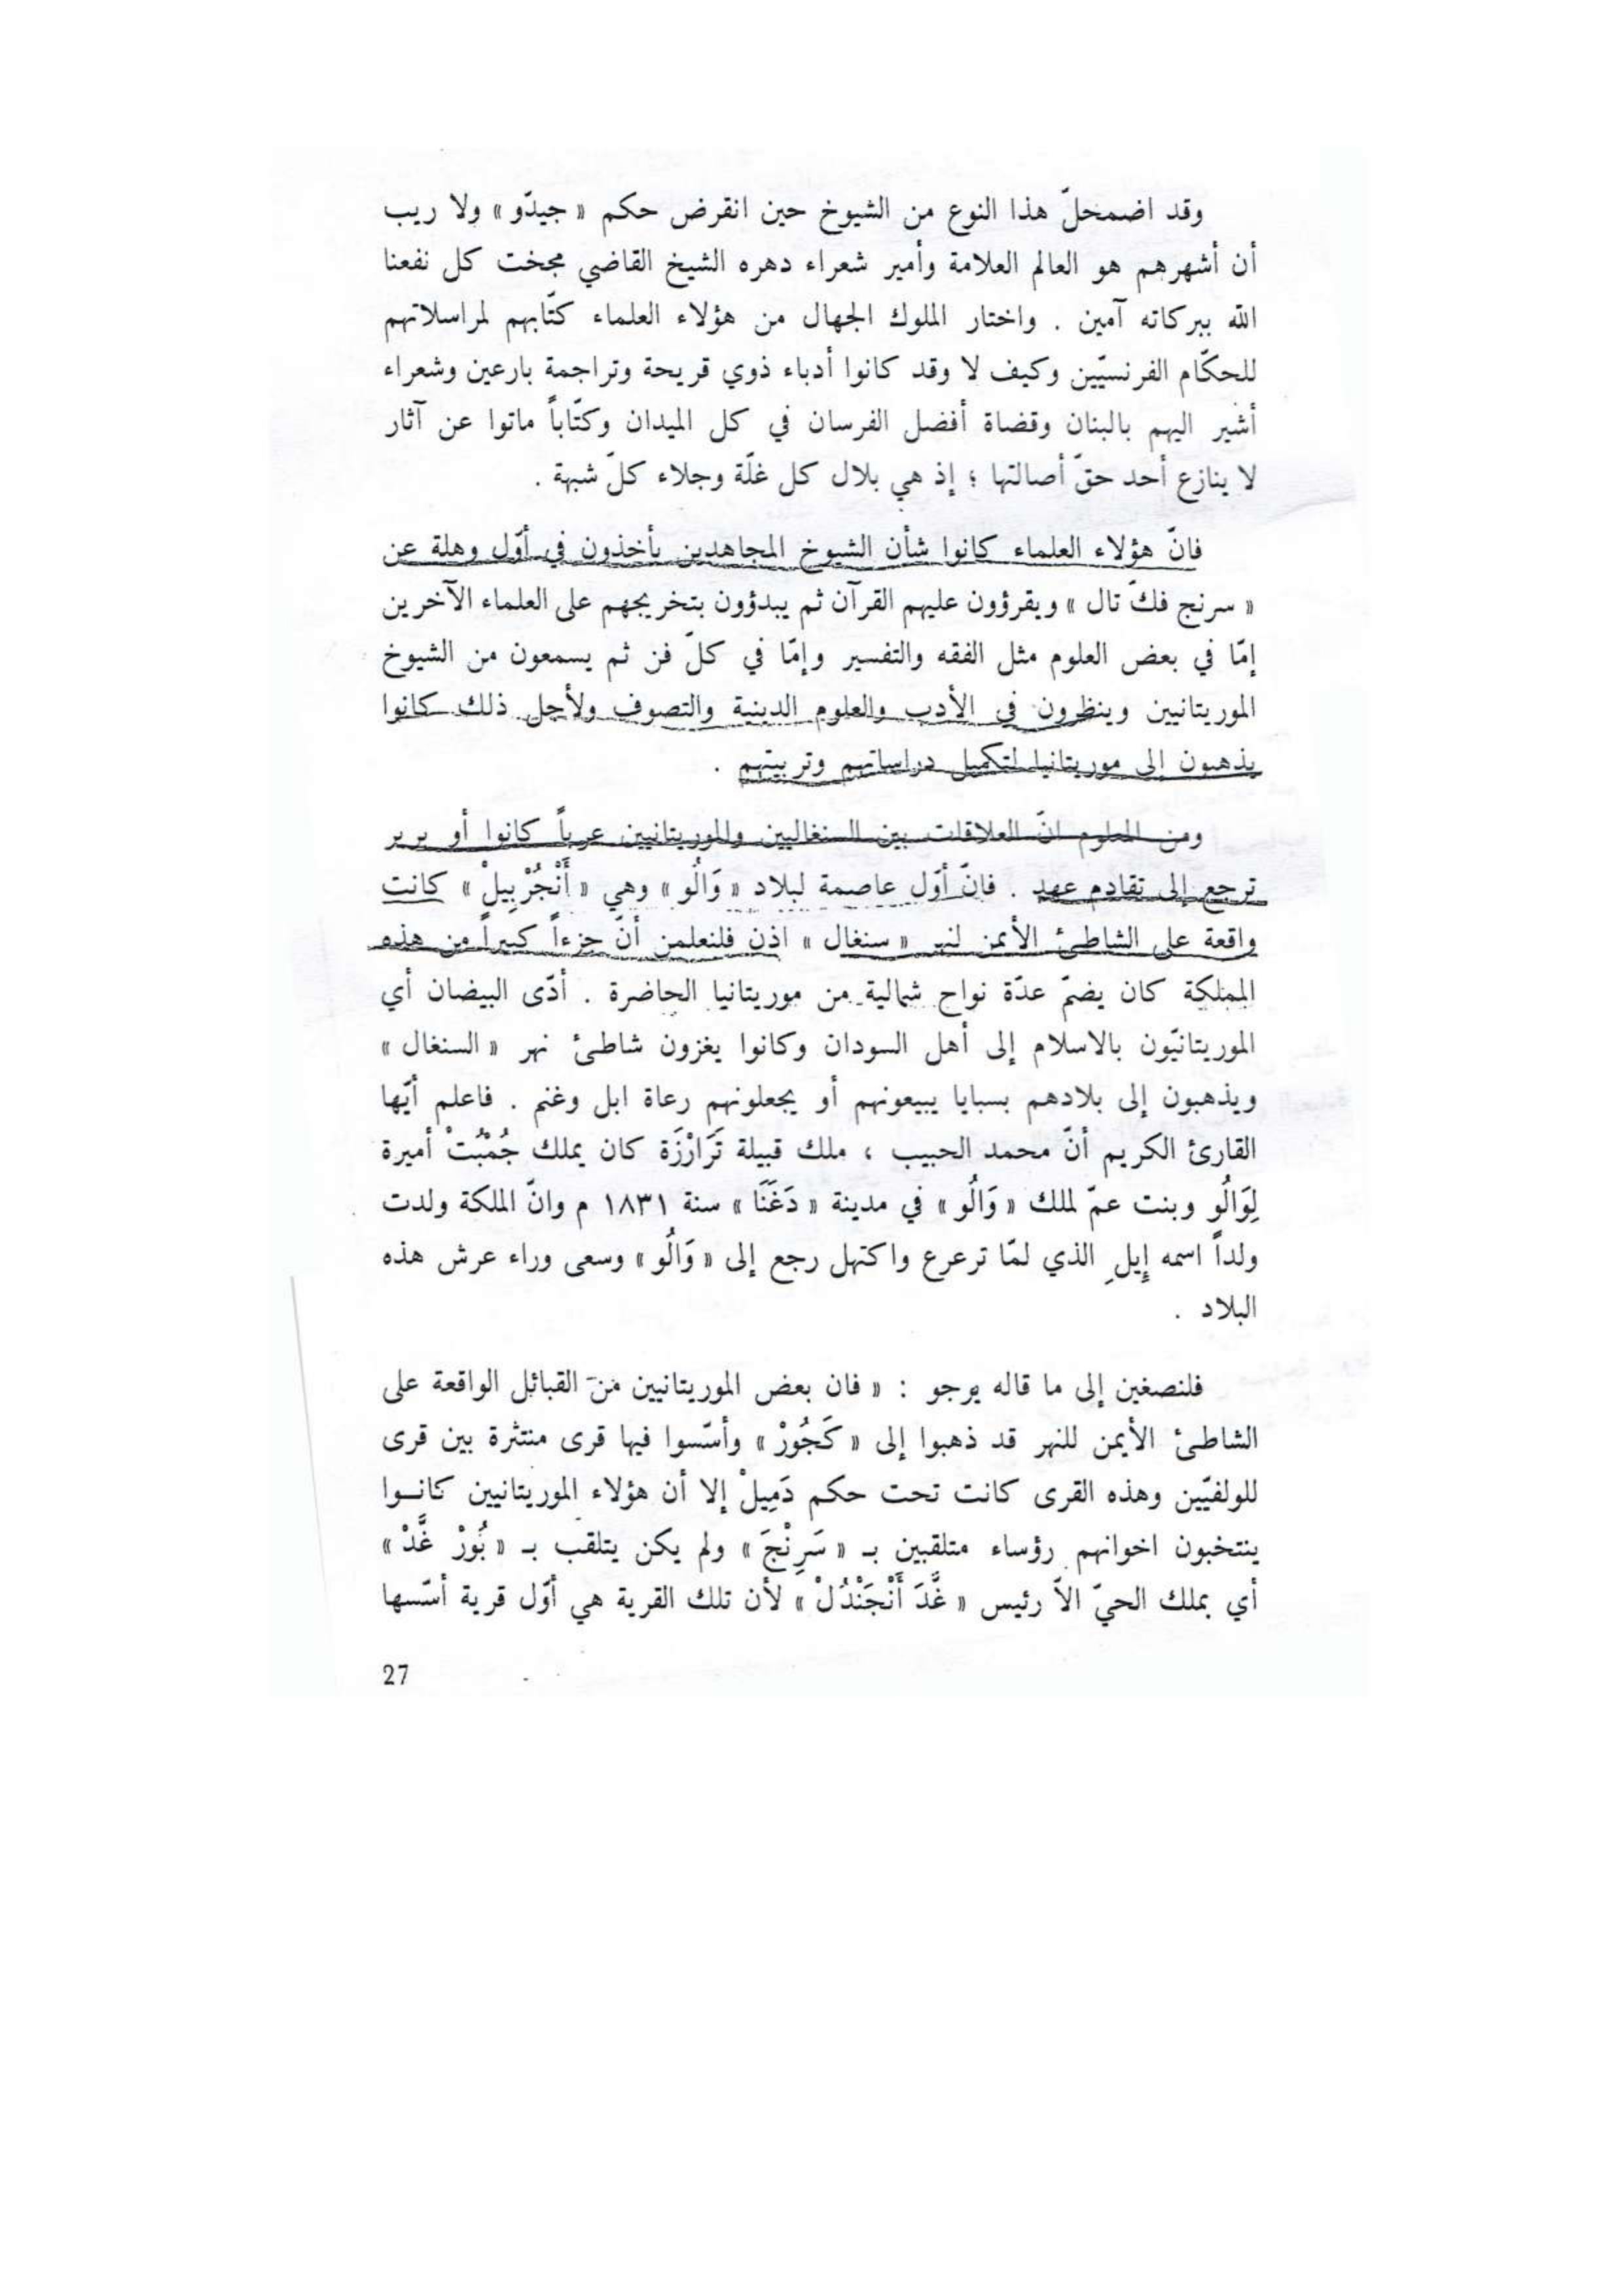 وقد اضمحلّ هذا النوع من الشيوخ حين انقرض حكم « جيدّو » ولا ريب
أن أشهرهم هو العالم العلامة وأمير شعراء دهره الشيخ القاضي مجخت كل نفعنا
الله ببركاته آمين . واختار الملوك الجهال من هؤلاء العلماء كتّابهم لمراسلاتهم
للحكّام الفرنسيّين وكيف لا وقد كانوا أدباء ذوي قريحة وتراجمة بارعين وشعراء
أشير اليهم بالبنان وقضاة أفضل الفرسان في كل الميدان وكتّاباً ماتوا عن آثار
لا ينازع أحد حقّ أصالتها ؛ إذ هي بلال كل غلّة وجلاء كلّ شبهة .
فانّ هؤلاء العلماء كانوا شأن الشيوخ المجاهدين يأخذون في أوّل وهلة عن
« سرنج فكّ تال » ويقرؤون عليهم القرآن ثم يبدؤون بتخريجهم على العلماء الآخرين
إمّا في بعض العلوم مثل الفقه والتفسير وإمّا في كلّ فن ثم يسمعون من الشيوخ
الموريتانيين وينظرون في الأدب والعلوم الدينية والتصوف ولأجل ذلك كانوا
يذهبون إلى موريتانيا لتكميل دراساتهم وتربيتهم .
ومن المعلوم انّ العلاقات بين السنغاليين والموريتانيين عرباً كانوا أو بربر
ترجع إلى تقادم عهد . فانّ أوّل عاصمة لبلاد « وَالُو » وهي « أَنْجُرْبِيلْ » كانت
واقعة على الشاطئ الأيمن لنهر « سنغال » اذن فلنعلمن أنّ جزءاً كبيراً من هذه
المملكة كان يضمّ عدّة نواح شمالية من موريتانيا الحاضرة . أدّى البيضان أي
الموريتانيّون بالاسلام إلى أهل السودان وكانوا يغزون شاطئ نهر « السنغال »
ويذهبون إلى بلادهم بسبايا يبيعونهم أو يجعلونهم رعاة ابل وغنم . فاعلم أيّها
القارئ الكريم أنّ محمد الحبيب ، ملك قبيلة تَرَارْزَة كان يملك جُمْبُتْ أميرة
لِوَالُو وبنت عمّ لملك « وَالُو » في مدينة « دَغَنَا » سنة ١٨٣١ م وانّ الملكة ولدت
ولداً اسمه إِيلِ الذي لمّا ترعرع واكتهل رجع إلى « وَالُو » وسعى وراء عرش هذه
البلاد .
فلنصغين إلى ما قاله يرجو : « فان بعض الموريتانيين من القبائل الواقعة على
الشاطئ الأيمن للنهر قد ذهبوا إلى « كَجُورْ » وأسّسوا فيها قرى منتثرة بين قرى
للولفيّين وهذه القرى كانت تحت حكم دَمِيلْ إلا أن هؤلاء الموريتانيين كانوا
ينتخبون اخوانهم رؤساء متلقبين بـ « سَرِنْجَ » ولم يكن يتلقب بـ « بُورْ غَّدْ »
أي بملك الحيّ الاّ رئيس « غَّدَ أَنْجَنْدُلْ » لأن تلك القرية هي أوّل قرية أسّسها
27